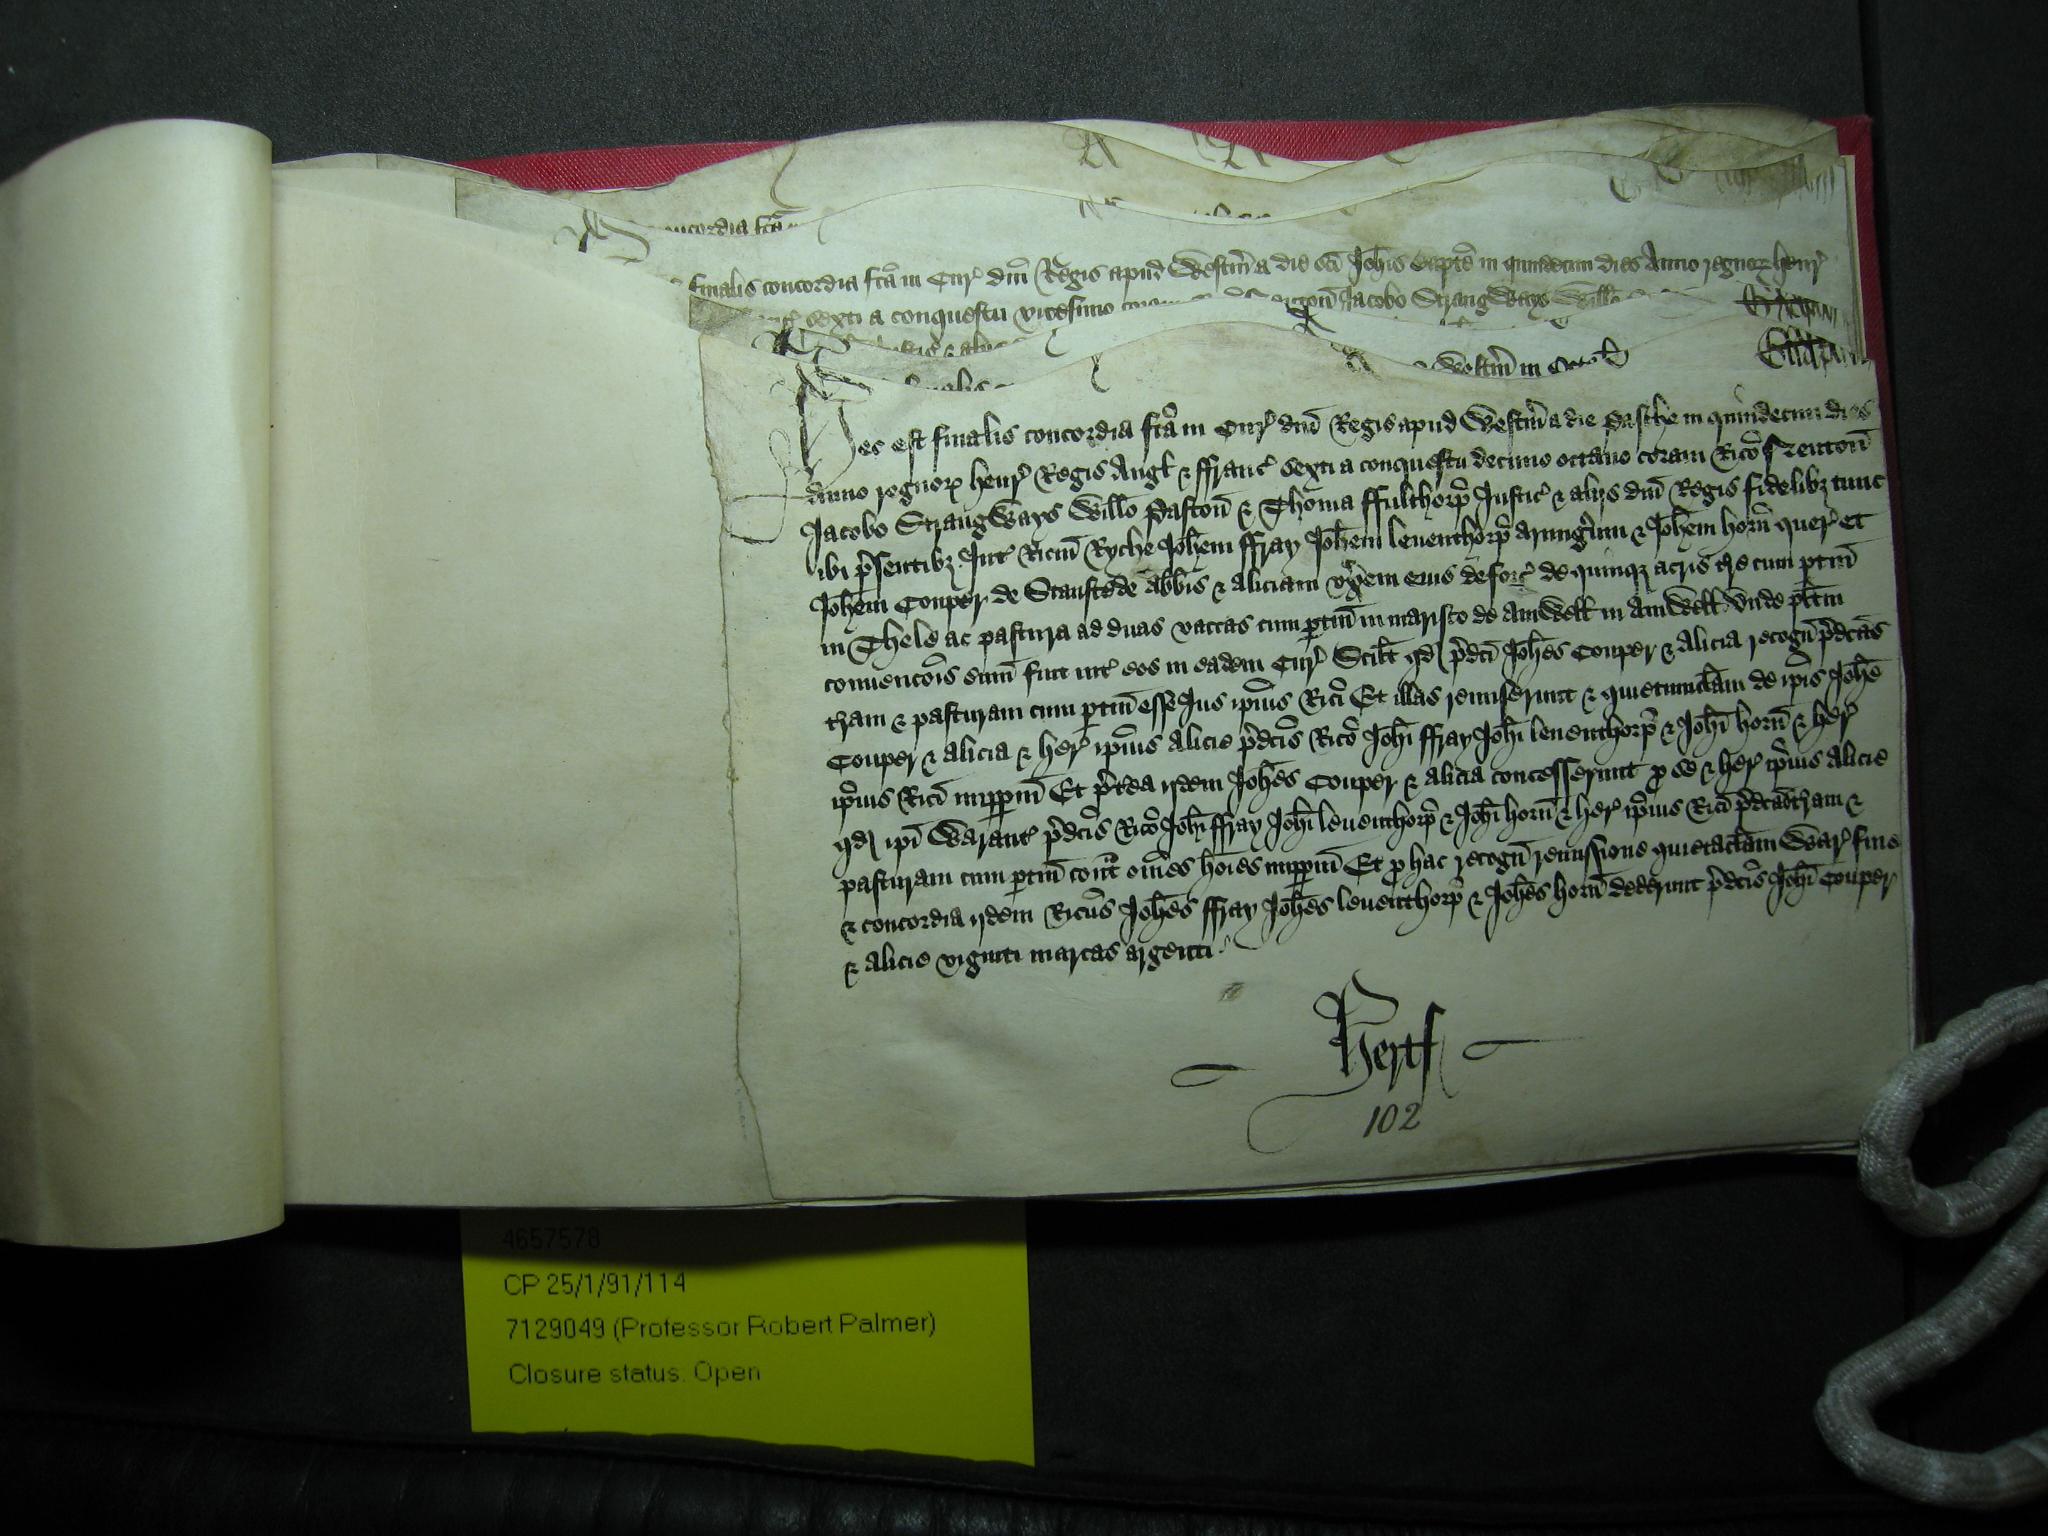 concordia fcā
finalis concordia fcā in Cur dnī Regis apud Westm̄ a die scī Johīs Bapte in quindecim dies Anno regnor Henr
sexti a conquestu vicesimo Jacobo Strangways Willo
Westm̄ in Octab
Hec est finalis concordia fcā in Cur dnī Regis apud Westm̄ a die Pasche in quindecim dies
Anno regnor Henr Regis Angl & ffranc sexti a conquestu decimo octavo coram Rico Neuton
Jacobo Strangways Willo Paston & Thoma ffulthorp Justic & aliis dnī Regis fidelibz tunc
ibi p̄sentibz Int Ricm Ryche Johem ffray Johem Leuenthorp armigum & Johem Horn quer et
Johem Couper de Stanstede Abbis & Aliciam uxem eius deforc de quinqz acris tre cum ptin
in Thele ac pastura ad duas vaccas cum ptin in marisco de Amwell in Amwell Unde plitm
convencois sum fuit int eos in eadem Cur Scilt qd p̄dci Johes Couper & Alicia recogn p̄dcas
tram & pasturam cum ptin esse Jus ipius Rici Et illas remiserunt & quietumclam de ipis Johe
Couper & Alicia & her ipius Alicie p̄dcis Rico Johi ffray Johi Leuenthorp & Johi Horn & her
ipius Rici imppm Et p̄terea iidem Johes Couper & Alicia concesserunt p se & her ipius Alicie
qd ipi Warant p̄dcis Rico Johi ffray Johi Leuenthorp & Johi Horn & her ipius Rici p̄dcas tram &
pasturam cum ptin contr omes hoies imppm Et p hac recogn remissione quietaclam War fine
& concordia iidem Ricus Johes ffray Johes Leuenthorp & Johes Horn dederunt p̄dcis Johi Couper
& Alicie viginti marcas argenti
Hertf
102
4657578
CP 25/1/91/114
7129049 (Professor Robert Palmer)
Closure status: Open